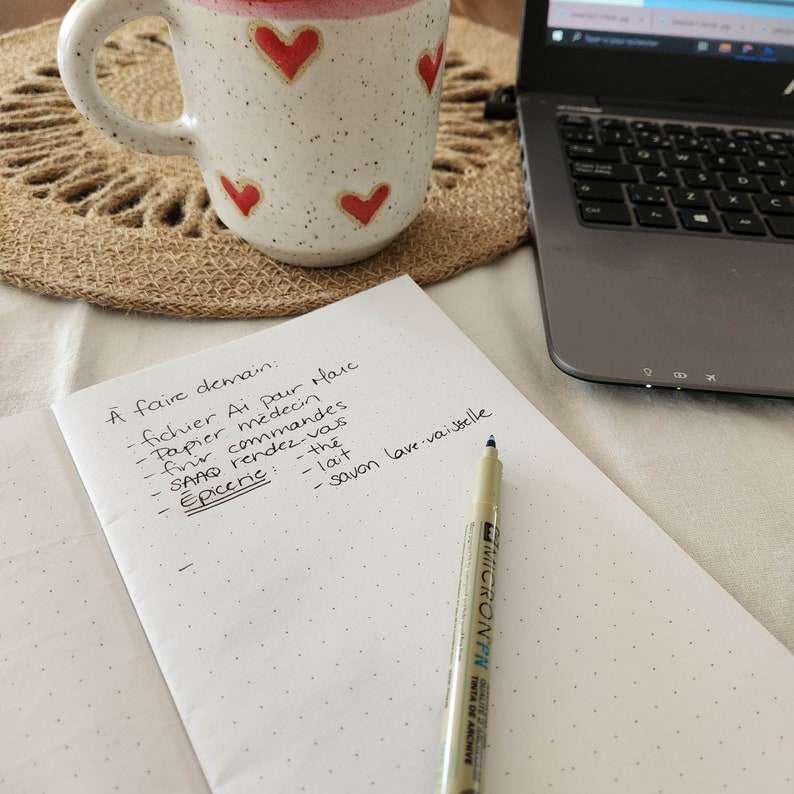 À faire demain:
- fichier Ai pour Marc
- Papier médecin
- finir commandes
- SAAQ rendez-vous
- Épicerie: - thé
- lait
- savon lave-vaisselle
-
MICRON PN
QUALITÉ D'ARCHIVE
TINTA DE ARCHIVE